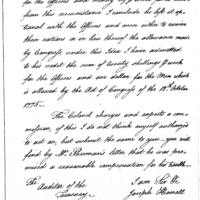 for the Officers and
from this circumstance I conclude he left it op-
tional with the Officers and men either to receive
their rations or in lieu thereof the allowance made
by Congress, under this Idea I have admitted
to his credit the sum of twenty shillings
for the Officers and one dollar for the Men which
is allowed by the Act of Congress of the 12th October
1775.
The Colonel charges and expects a com-
mission, of this I do not think myself authorized
to act on, but submit the same to you you will
find by Mr. Sherman's letter that he was pro-
mised a reasonable compensation for his trouble.
The Auditor of the
Treasury
I am Sir &c
Joseph Howell